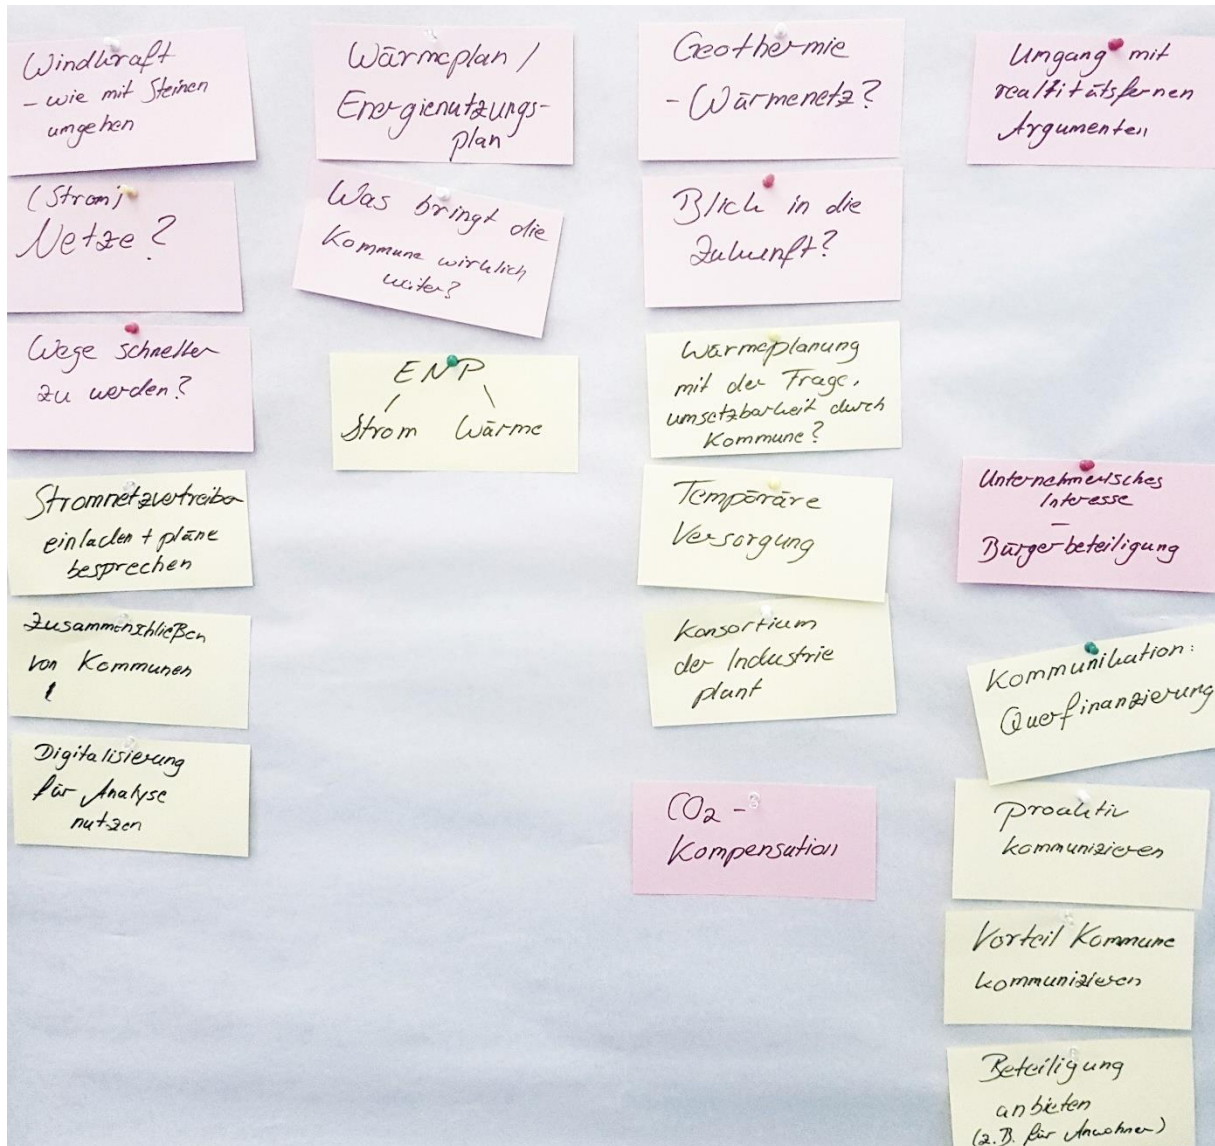 Windkraft
- wie mit Steinen
umgehen
(Strom)
Netze?
Wege schneller
zu werden?
Stromnetzvertreiber
einladen + pläne
besprechen
Zusammenschließen
von Kommunen
Digitalisierung
für Analyse
nutzen
Wärmeplan /
Energienutzungs-
plan
Was bringt die
Kommune wirklich
weiter?
ENP
Strom Wärme
Geothermie
- Wärmenetz?
Blick in die
Zukunft?
Wärmeplanung
mit der Frage,
umsetzbarkeit durch
Kommune?
Temporäre
Versorgung
Konsortium
der Industrie
plant
CO2 -
Kompensation
Umgang mit
realtitätsfernen
Argumenten
Unternehmerisches
Interesse
-
Bürgerbeteiligung
Kommunikation:
Querfinanzierung
proaktiv
kommunizieren
Vorteil Kommune
kommunizieren
Beteiligung
anbieten
(z.B. für Anwohner)